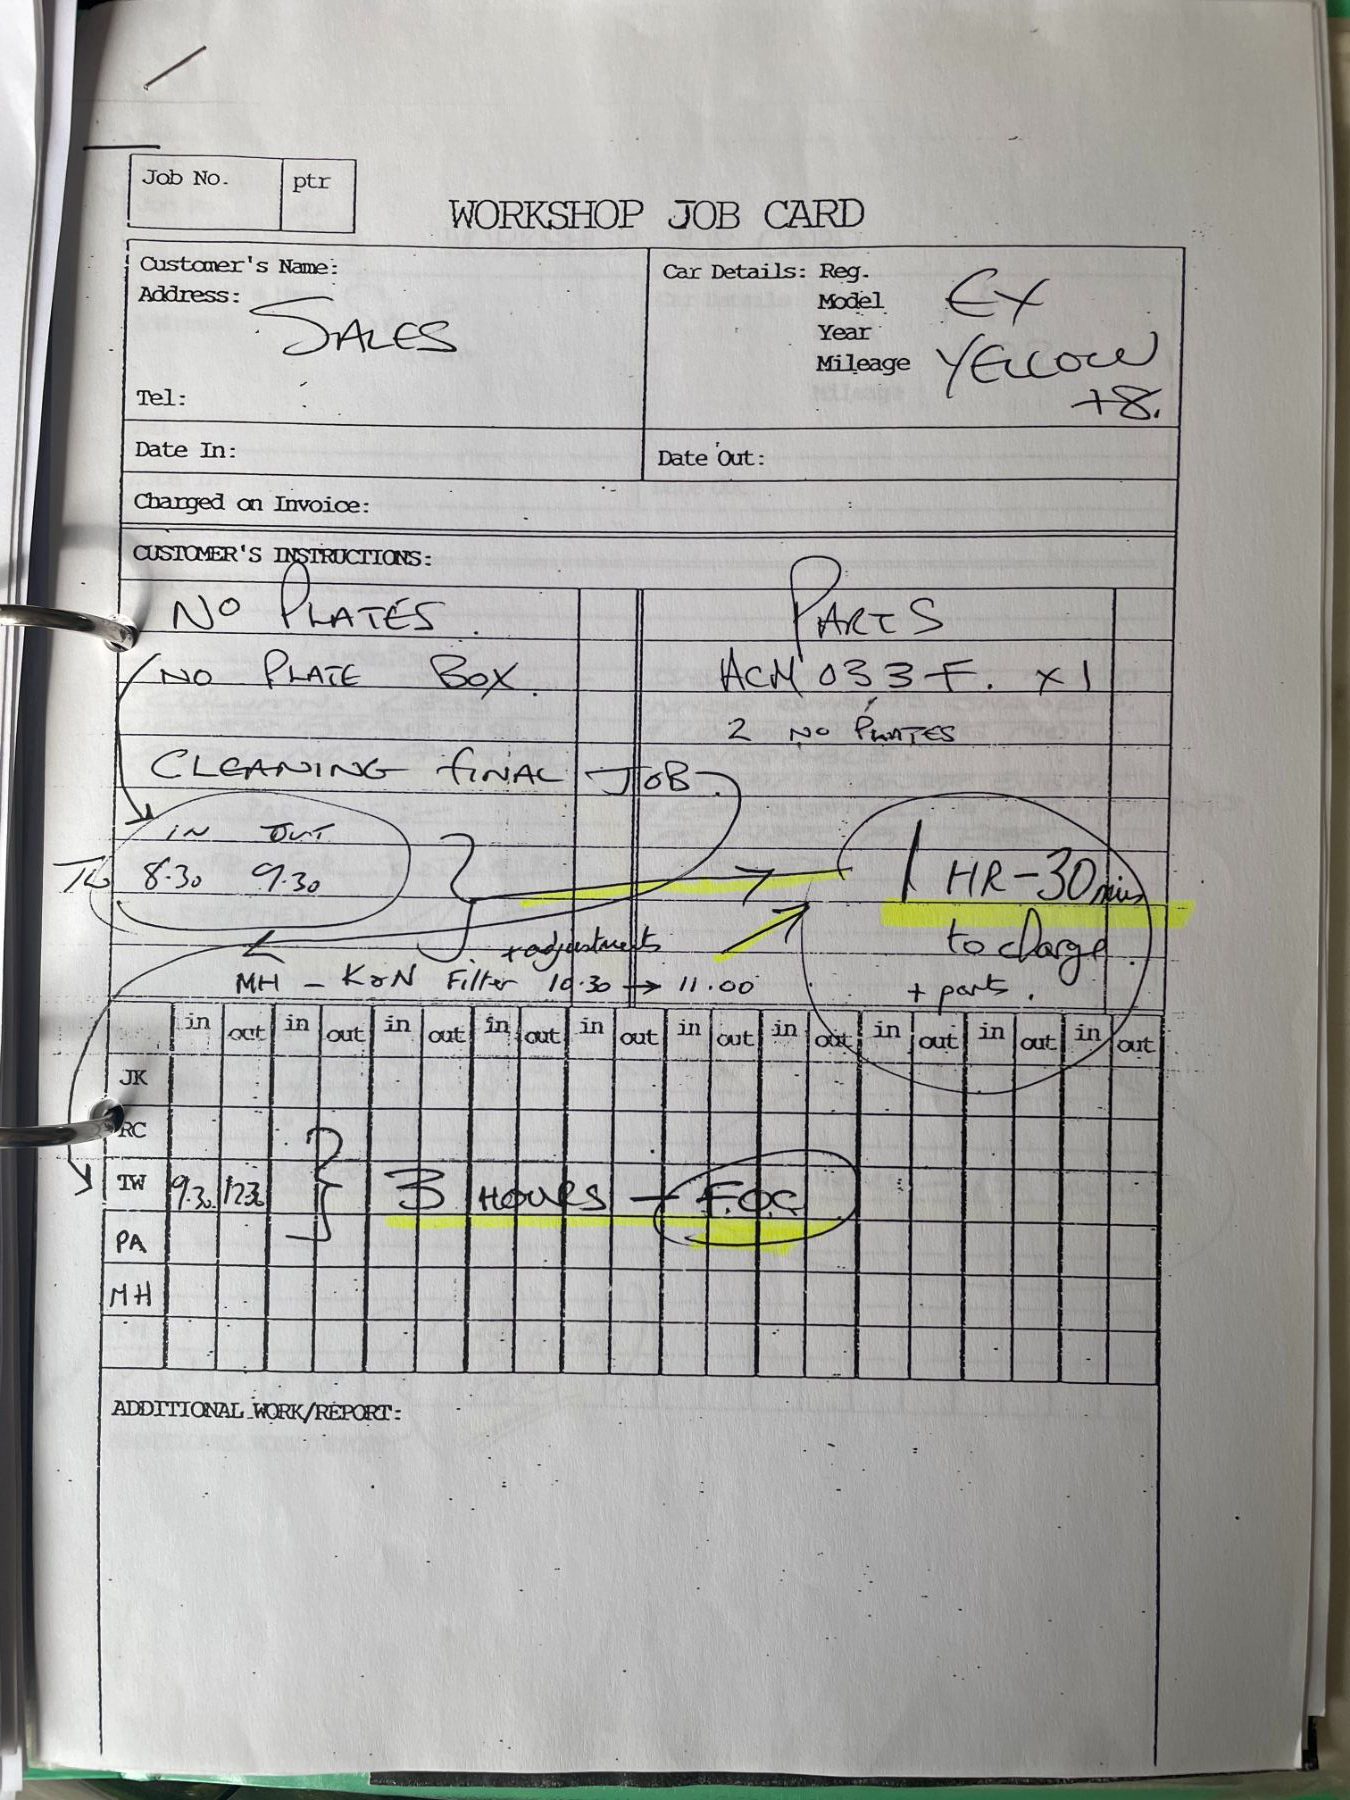 Job No. ptr
WORKSHOP JOB CARD
Customer's Name:
Address:
SALES
Tel:
Car Details: Reg.
Model EX
Year
Mileage YELLOW
+8.
Date In: Date Out:
Charged on Invoice:
CUSTOMER'S INSTRUCTIONS:
NO PLATES. PARTS
NO PLATE BOX. ACM 033F. x1
2 NO PLATES
CLEANING FINAL JOB.
IN OUT
8.30 9.30
1 HR-30 mins
to charge.
+ parts.
+ adjustments
MH - K&N Filter 10.30 → 11.00
in out in out in out in out in out in out in out in out in out in out
JK
RC
TW 9.30 12.30 3 HOURS - F.O.C
PA
MH
ADDITIONAL WORK/REPORT: